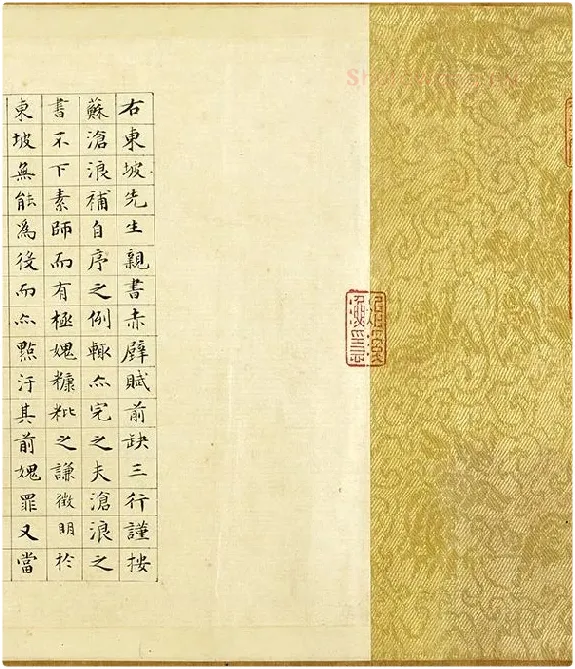 右東坡先生親書赤壁賦前缺三行謹按
蘇滄浪補自序之例輒亦完之夫滄浪之
書不下素師而有極媿糠粃之謙徵明於
東坡無能爲役而亦點汙其前媿罪又當